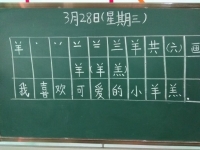 3月28日(星期三)
羊 丶 丷 䒑 兰 羊 共(六) 画
羊(羊羔)
我喜欢可爱的小羊羔。